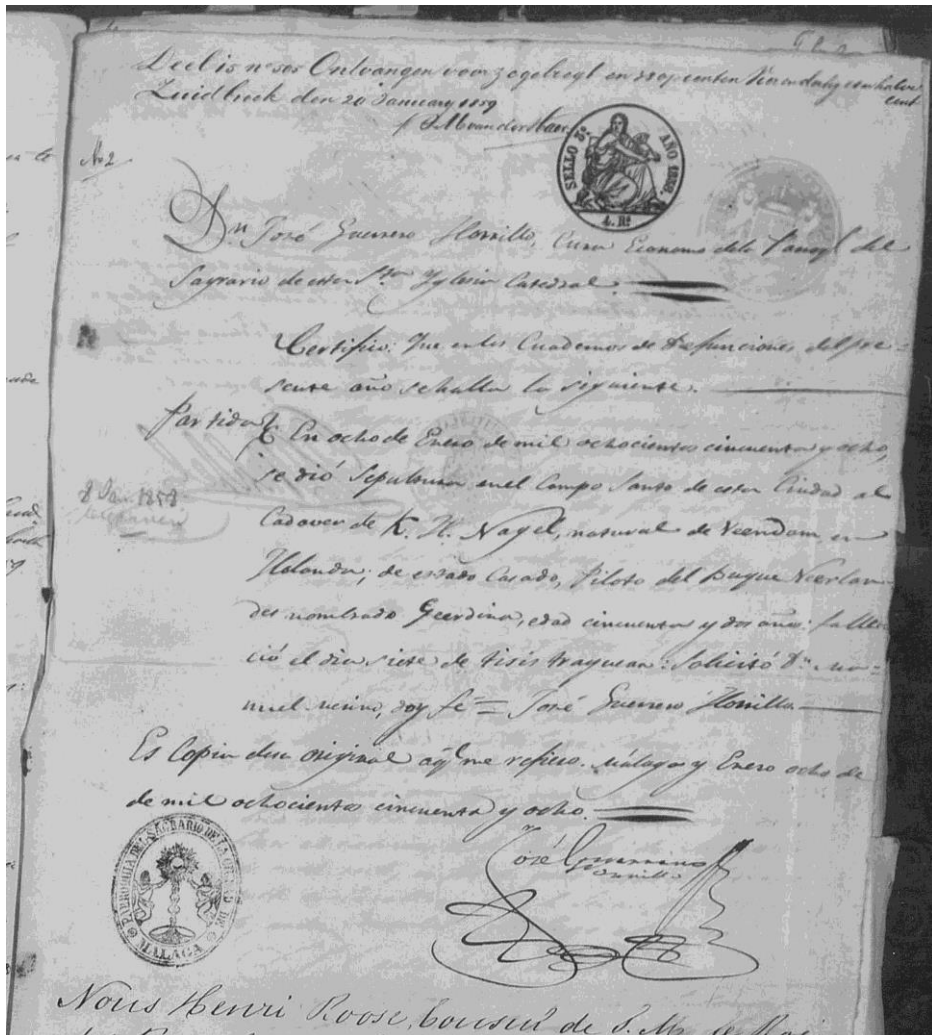 Deel 15 nº 505 Ontvangen voor zegelregt en 38 opcenten een halve
cent
Zuidbroek den 20 January 1859
Nº 2
SELLO 3º AÑO 1858.
4 Rs
Dn José Guerrero Horrillo, Cura Economo de la Parroql del
Sagrario de esta Sta Yglesia Catedral.
Certifico: Que en los Cuadernos de Defunciones del pre-
sente año se halla la siguiente.
Partida
En ocho de Enero de mil ochocientos cincuenta y ocho,
se dió Sepultura en el Campo Santo de esta Ciudad al
8 Jan. 1858
Cadaver de K. H. Nagel, natural de Veendam en
Holanda; de estado Casado, Piloto del Buque Neerlan-
des nombrado Geerdina, edad cincuenta y dos años: falle-
ció el dia siete de tisis traqueal: Solicitó Dn Ma-
nuel, doy fé = José Guerrero Horrillo
Es Copia de su original á q.e me refiero. Málaga y Enero ocho de
de mil ochocientos cincuenta y ocho.
José Guerrero
Horrillo
PARROQUIA DEL SAGRARIO DE LA CIUDAD DE
MALAGA
Nous Henri Roose, Consul de S. M. le Roi